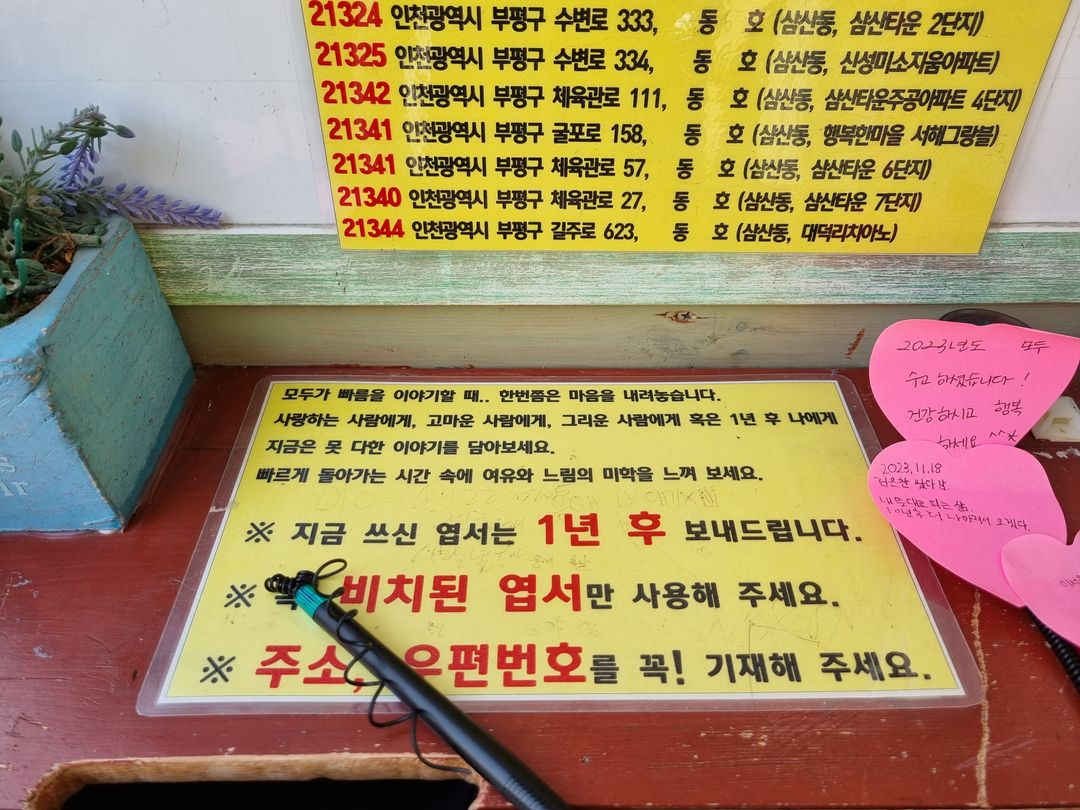 21324 인천광역시 부평구 수변로 333, 동 호 (삼산동, 삼산타운 2단지)
21325 인천광역시 부평구 수변로 334, 동 호 (삼산동, 신성미소지움아파트)
21342 인천광역시 부평구 체육관로 111, 동 호 (삼산동, 삼산타운주공아파트 4단지)
21341 인천광역시 부평구 굴포로 158, 동 호 (삼산동, 행복한마을 서해그랑블)
21341 인천광역시 부평구 체육관로 57, 동 호 (삼산동, 삼산타운 6단지)
21340 인천광역시 부평구 체육관로 27, 동 호 (삼산동, 삼산타운 7단지)
21344 인천광역시 부평구 길주로 623, 동 호 (삼산동, 대덕리치아노)
모두가 빠름을 이야기할 때.. 한번쯤은 마음을 내려놓습니다.
사랑하는 사람에게, 고마운 사람에게, 그리운 사람에게 혹은 1년 후 나에게
지금은 못 다한 이야기를 담아보세요.
빠르게 돌아가는 시간 속에 여유와 느림의 미학을 느껴 보세요.
※ 지금 쓰신 엽서는 1년 후 보내드립니다.
※ 비치된 엽서만 사용해 주세요.
※ 주소, 우편번호를 꼭! 기재해 주세요.
2023년도 모두
수고 하셨습니다!
건강하시고 행복
하세요 ^^*
2023.11.18
왔다감.
내 뜻대로 되는 삶